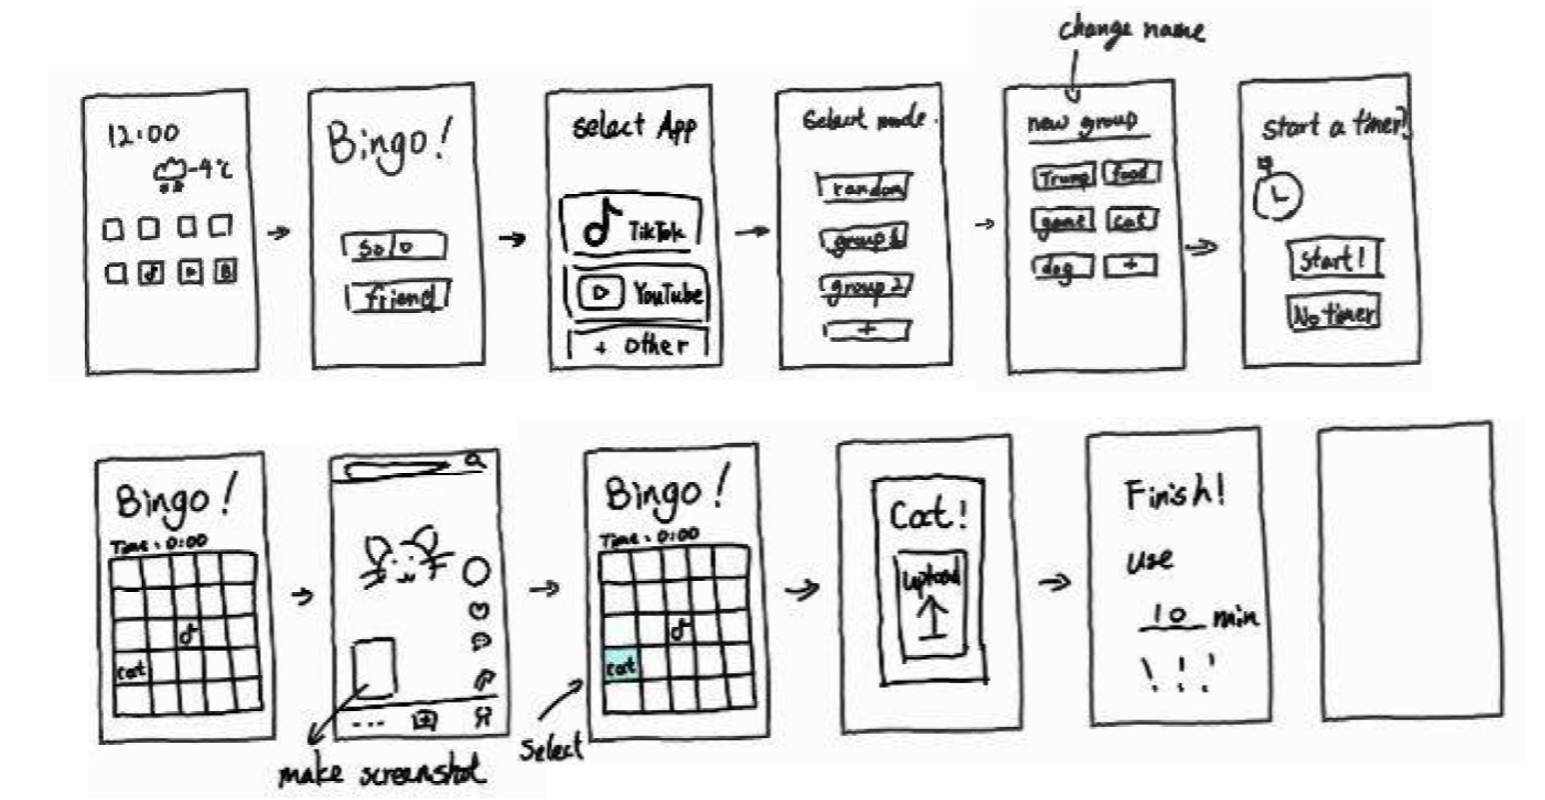 change name
12:00
-4℃
B
Bingo!
solo
friend
select App
TikTok
YouTube
+ other
Select mode.
random
group 1
group 2
+
new group
Trump food
game cat
dog +
start a timer?
start!
No timer
Bingo!
Time: 0:00
cat
make screenshot
Bingo!
Time: 0:00
cat
Select
Cat!
upload
Finish!
use
10 min
!!!